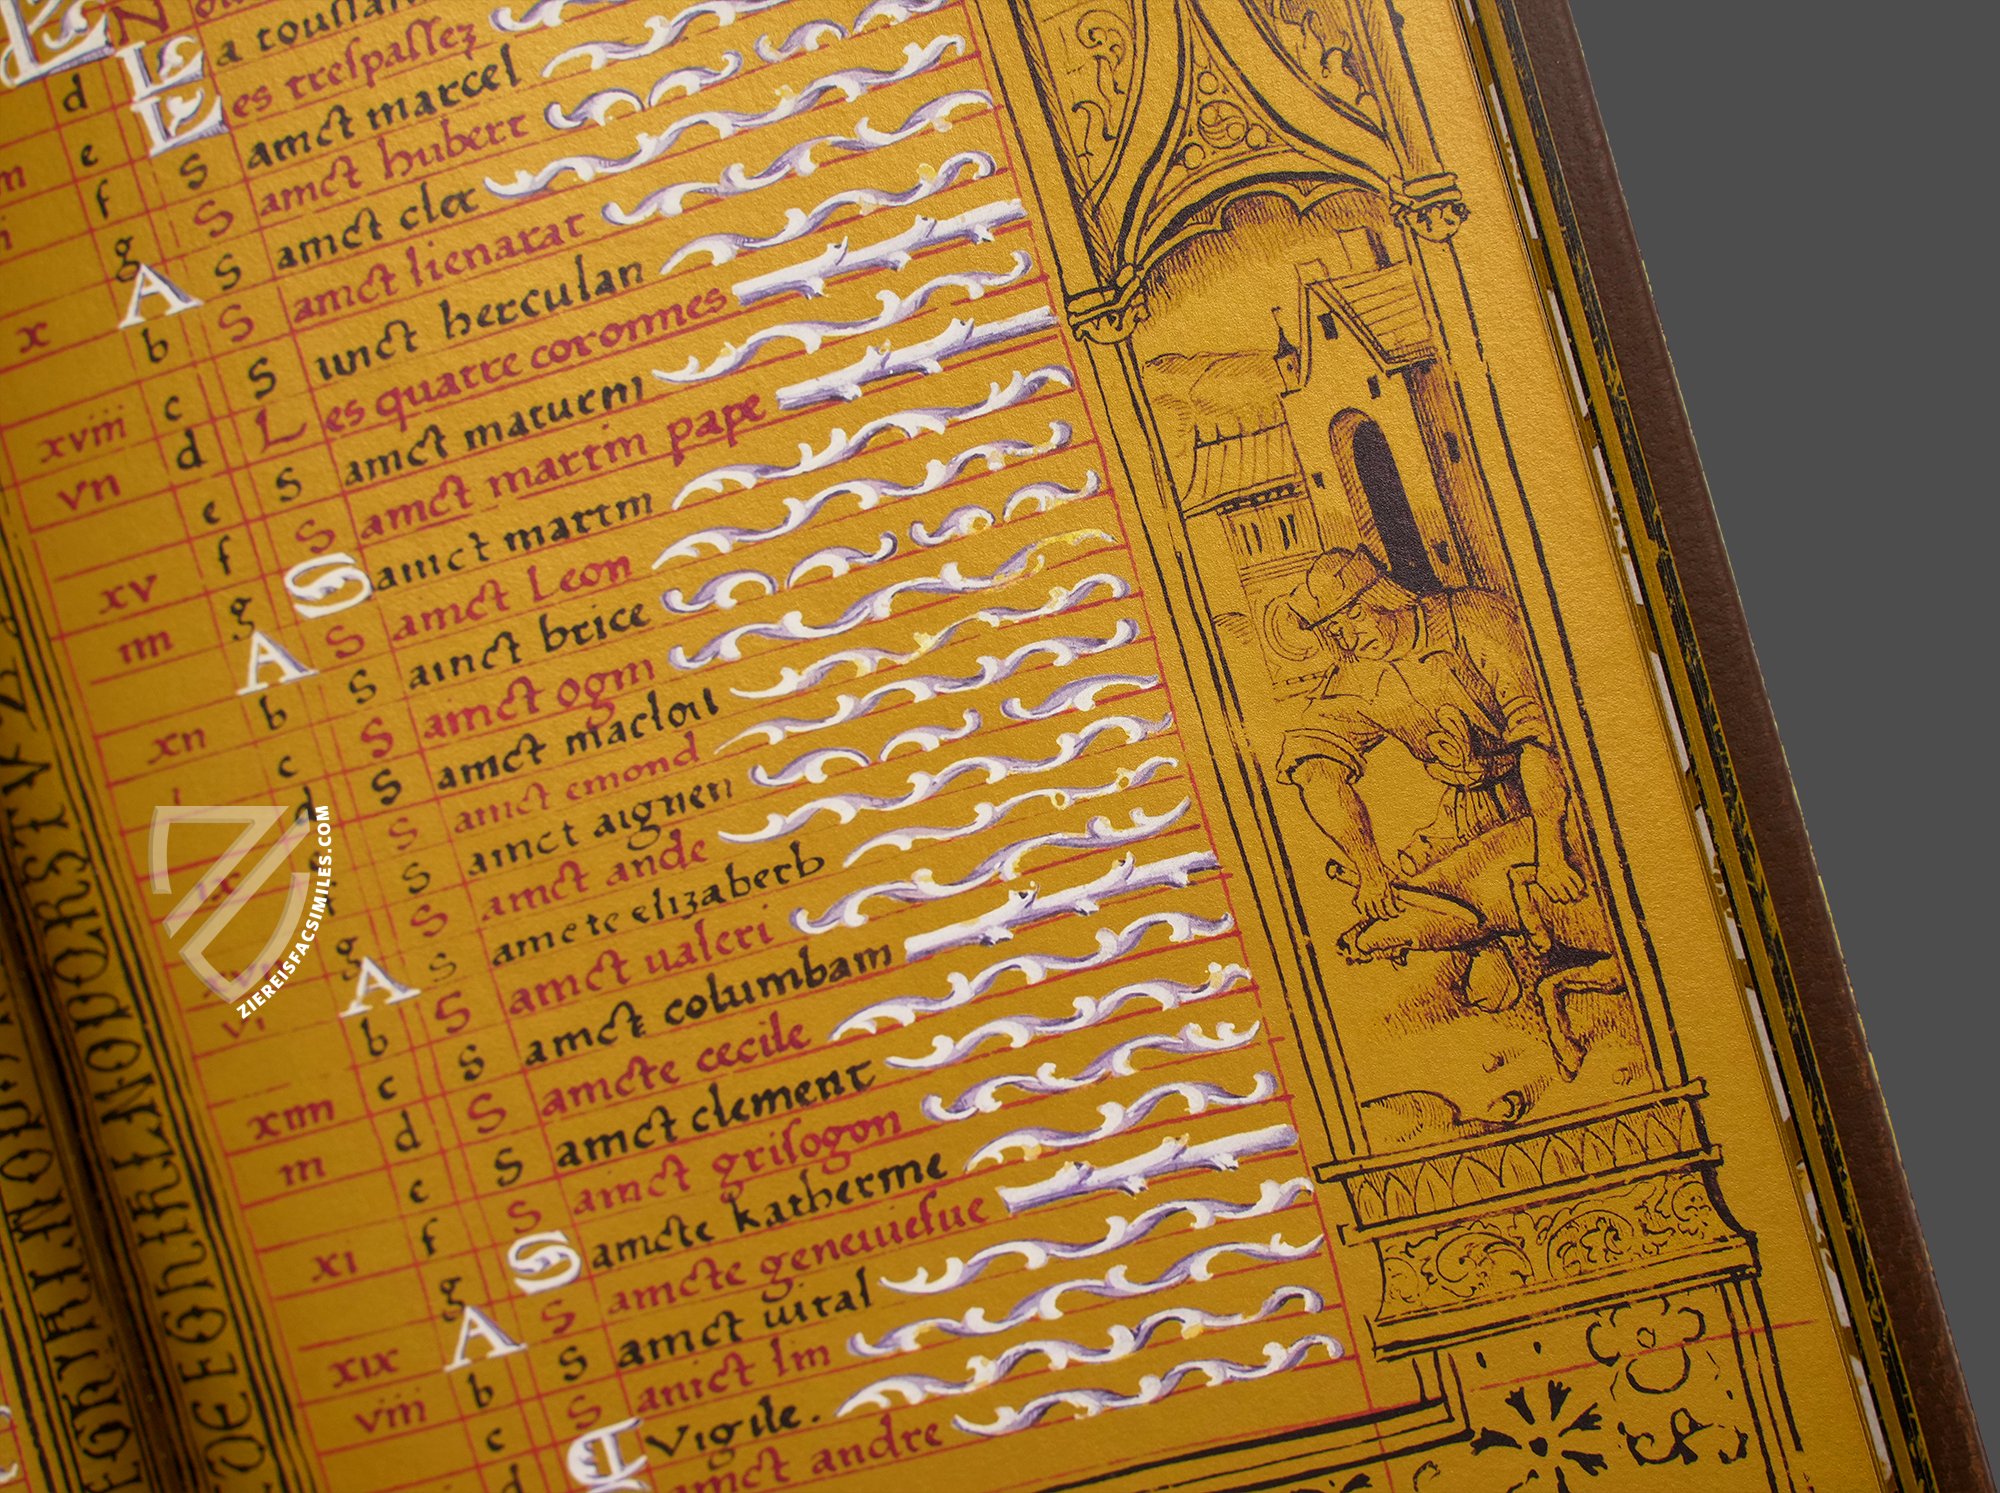 a toussain
d Les trespassez
e S ainct marcel
f S ainct hubert
g S ainct cler
x A S ainct lienarat
b S unct herculan
xviii c L es quatre coronnes
vii d S ainct maturin
e S ainct martin pape
xv f Sainct martin
iiii g S ainct Leon
A S ainct brice
xii b S ainct ogin
c S ainct maclou
d S ainct emond
S ainct aignen
S ainct ande
g S aincte elizabeth
A S ainct ualeri
vi b S ainct columbam
c S aincte cecile
xiiii d S ainct clement
iii e S ainct grisogon
f Saincte katherine
xi g S aincte geneuiefue
A S ainct uital
xix b S ainct lin
viii c Vigile.
d ainct andre
ZIEREISFACSIMILES.COM